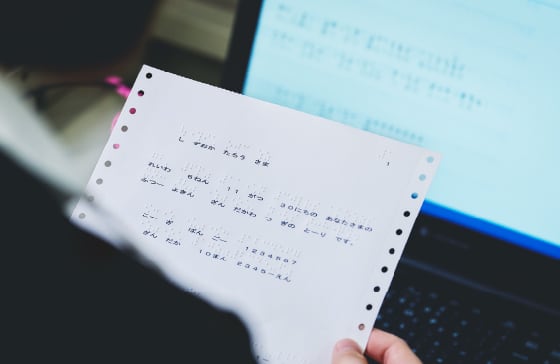 しずおか たろう さま 1
れいわ 6ねん 11がつ 30にちの あなたさまの
ふつー よきん ざんだかわ つぎの とーりです。
こーざ ばんごー 1234567
ざんだか 10まん 2345ーえん